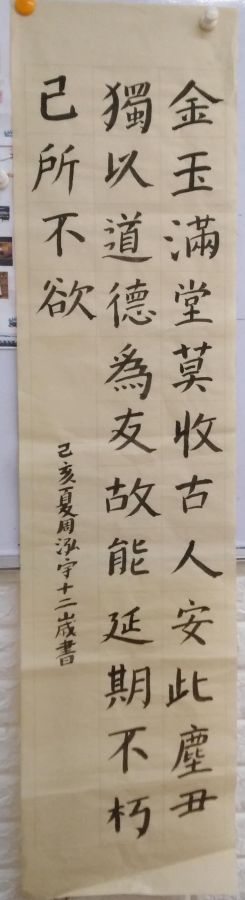 金玉滿堂莫收古人安此塵丑
獨以道德為友故能延期不朽
己所不欲
己亥夏周泓宇十二歲書